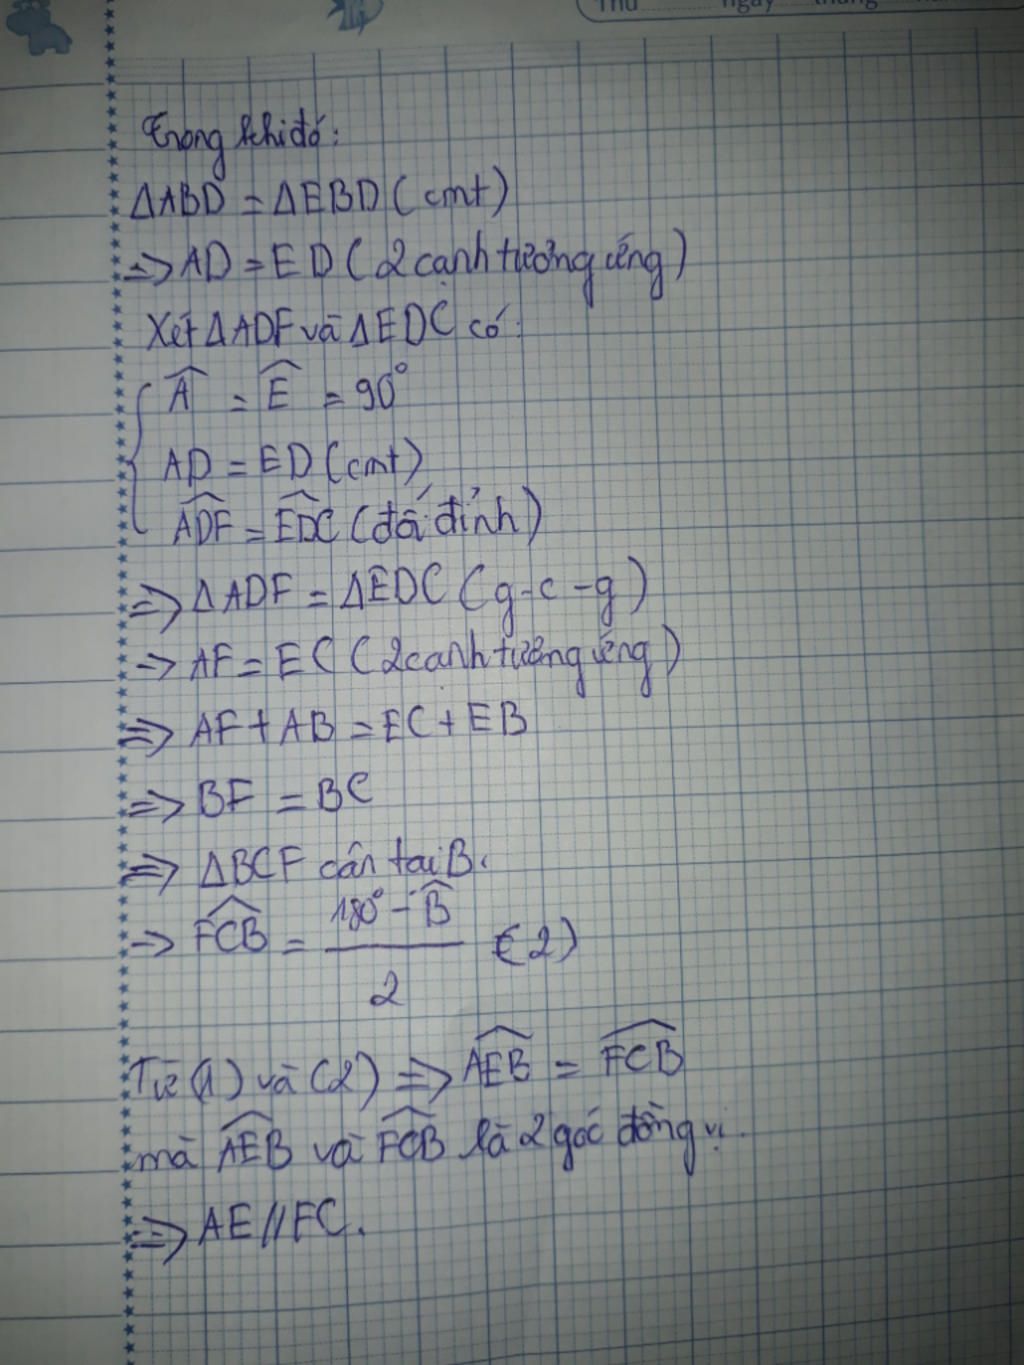 Thứ ngày tháng
Trong khi đó:
ΔABD = ΔEBD (cmt)
=> AD = ED (2 cạnh tương ứng)
Xét ΔADF và ΔEDC có:
Â = Ê = 90°
AD = ED (cmt)
\widehat{ADF} = \widehat{EDC} (đối đỉnh)
=> ΔADF = ΔEDC (g-c-g)
=> AF = EC (2 cạnh tương ứng)
=> AF + AB = EC + EB
=> BF = BC
=> ΔBCF cân tại B.
=> \widehat{FCB} = \frac{180° - \widehat{B}}{2} (2)
Từ (1) và (2) => \widehat{AEB} = \widehat{FCB}
mà \widehat{AEB} và \widehat{FCB} là 2 góc đồng vị.
=> AE // FC.